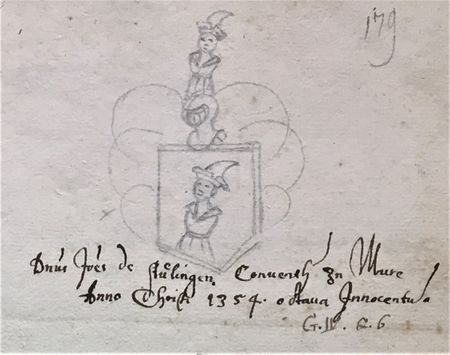 179
Dnus Joes de Stülingen Conventh Zu Mure
Anno Christi 1354. octaua Innocentū
G.II. C. 6